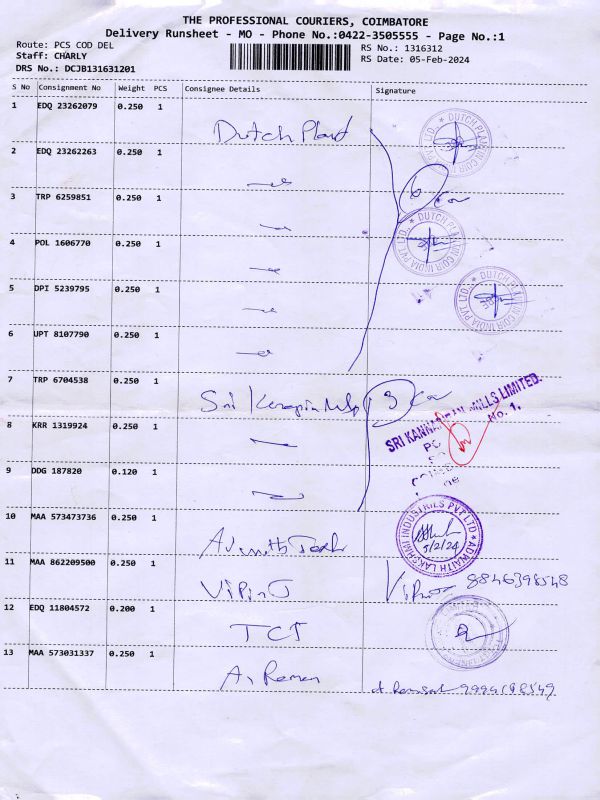 THE PROFESSIONAL COURIERS, COIMBATORE
Delivery Runsheet - MO - Phone No.:0422-3505555 - Page No.:1
Route: PCS COD DEL
RS No.: 1316312
Staff: CHARLY
RS Date: 05-Feb-2024
DRS No.: DCJB131631201
S No Consignment No Weight PCS Consignee Details Signature
1 EDQ 23262079 0.250 1 Dutch Plant
2 EDQ 23262263 0.250 1
3 TRP 6259851 0.250 1 6
4 POL 1606770 0.250 1
5 DPI 5239795 0.250 1
6 UPT 8107790 0.250 1
7 TRP 6704538 0.250 1 Sri 3
8 KRR 1319924 0.250 1
9 DDG 187820 0.120 1
10 MAA 573473736 0.250 1
11 MAA 862209500 0.250 1 Vipin 8846398548
12 EDQ 11804572 0.200 1
13 MAA 573031337 0.250 1 Raman
DUTCH PLANTIN COIR INDIA PVT LTD.
DUTCH PLANTIN COIR INDIA PVT LTD.
DUTCH PLANTIN COIR INDIA PVT LTD.
SRI MILLS LIMITED.
No. 1,
ADWAITH LAKSHMI INDUSTRIES PVT LTD
5/2/24